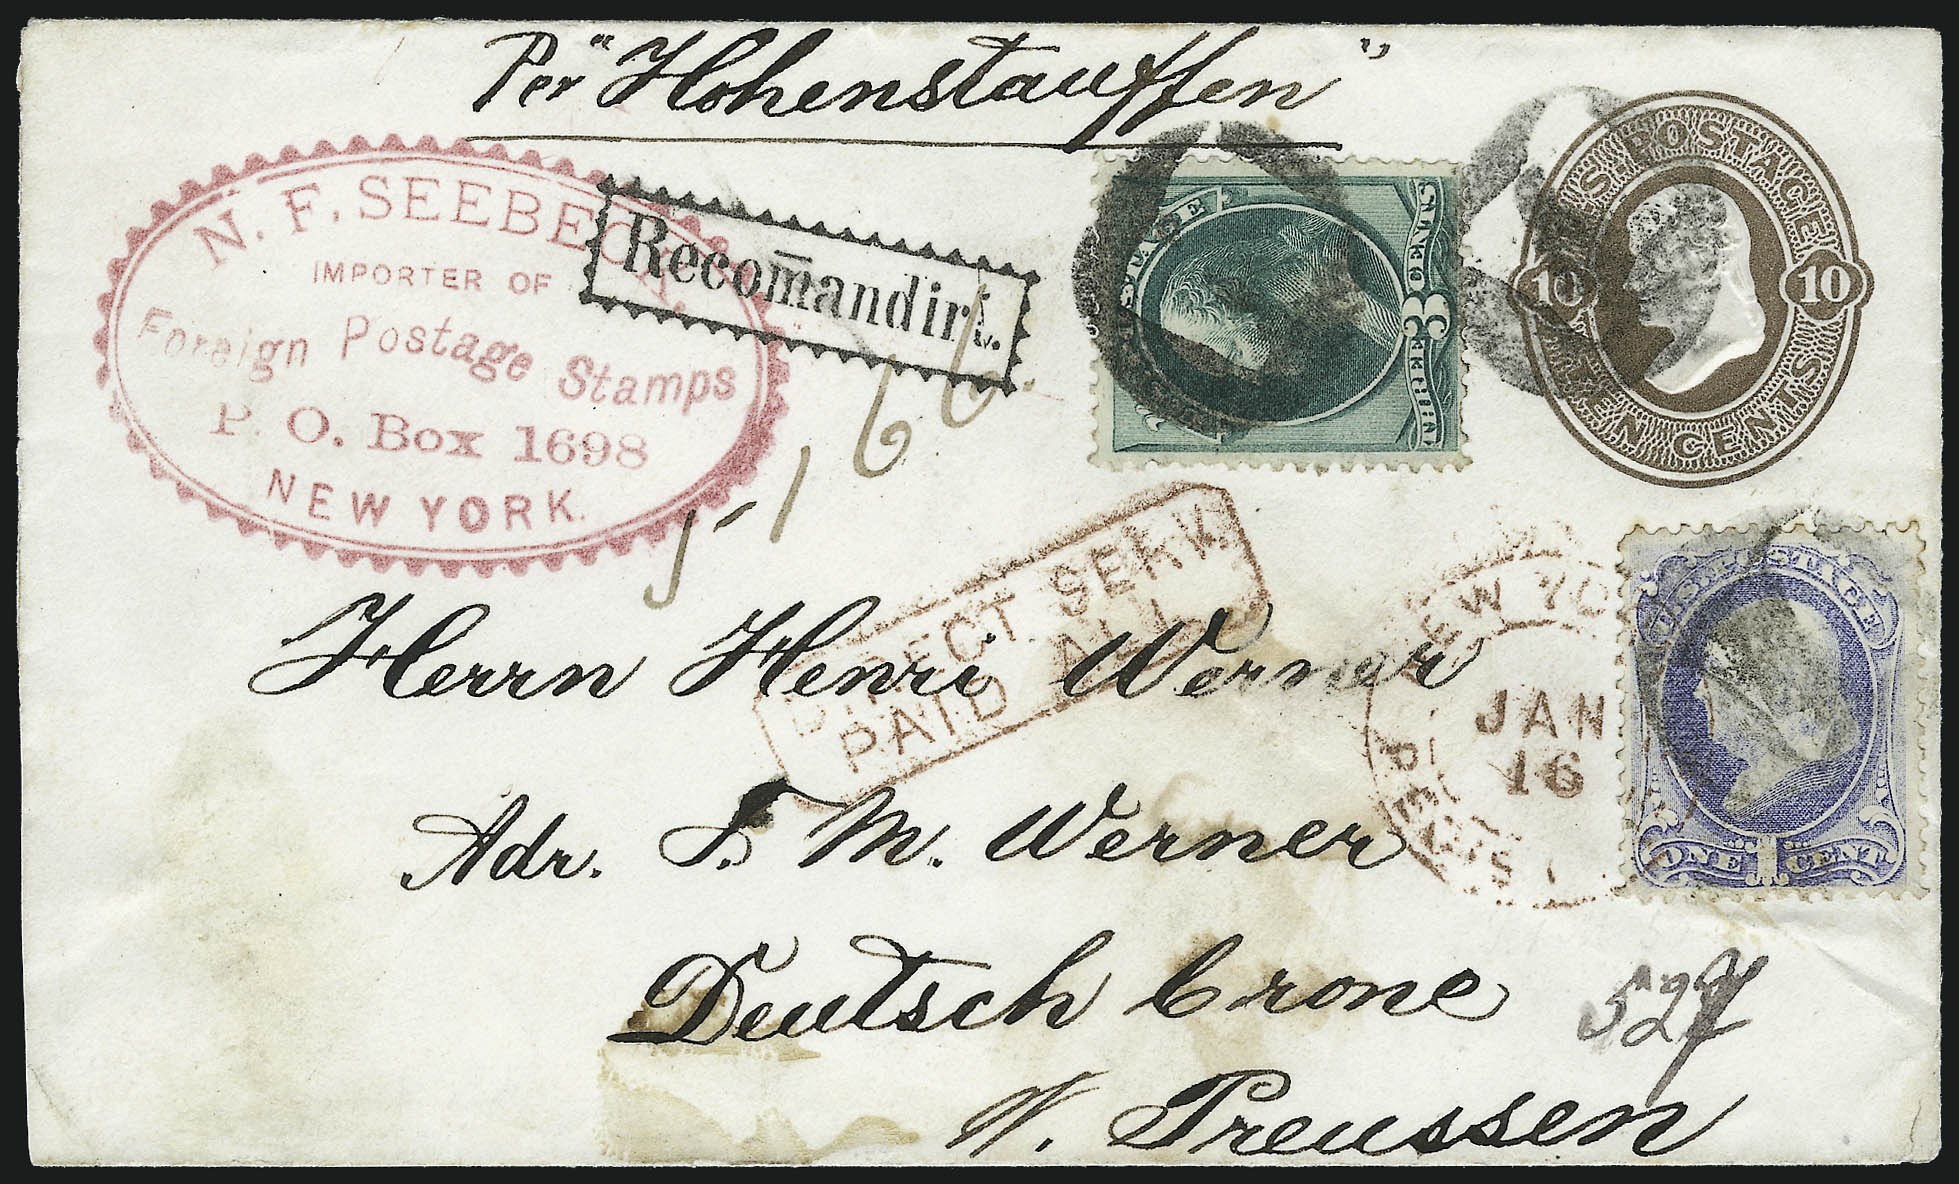 Per "Hohenstauffen"
N. F. SEEBECK,
IMPORTER OF
Foreign Postage Stamps
P. O. Box 1698
NEW YORK.
Recom̄andirt.
U.S. POSTAGE
3
U.S. POSTAGE
10 10
TEN CENTS
5-166
DIRECT SERV.
PAID ALL
NEW YO
JAN
16
U.S. POSTAGE
ONE 1 CENT
Herrn Henri Werner
Adr. F. M. Werner
Deutsch Crone
527
W. Preussen